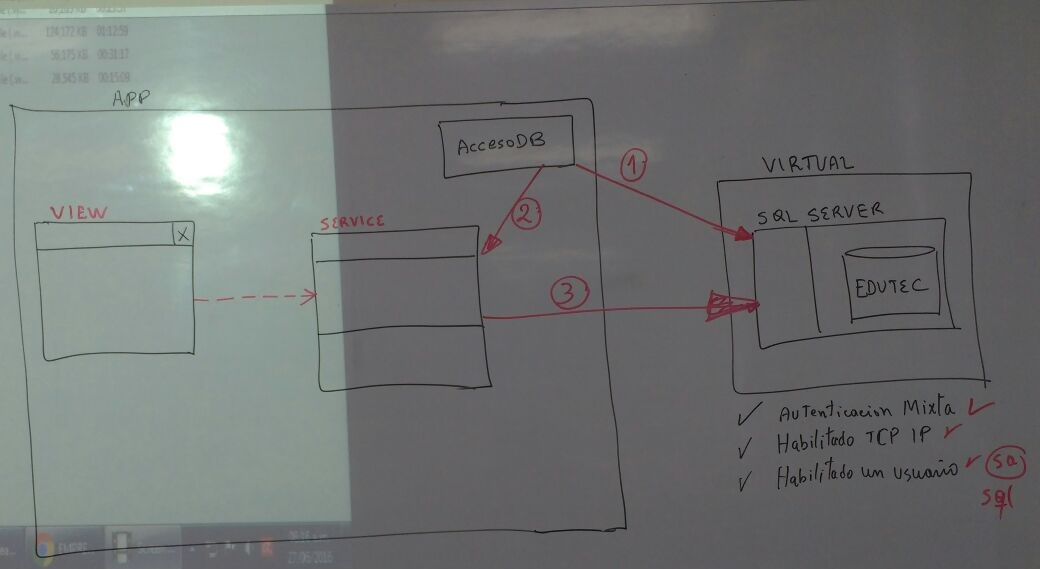 124,172 KB 01:12:59
56,175 KB 00:31:17
28,545 KB 00:15:09
APP
AccesoDB
1
VIRTUAL
VIEW
X
SERVICE
2
SQL SERVER
EDUTEC
3
✓ Autenticacion Mixta ✓
✓ Habilitado TCP IP ✓
✓ Habilitado un usuario ✓ sa
sql